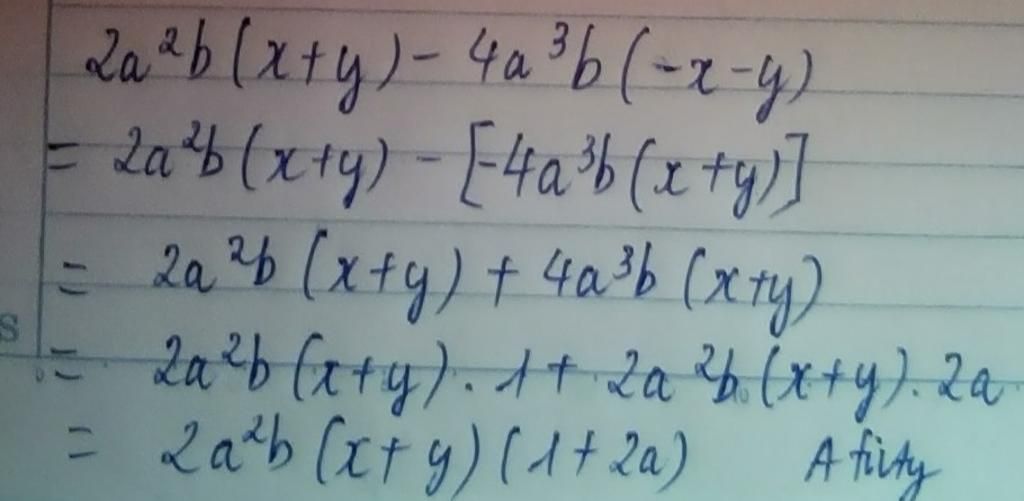 2a²b(x+y) - 4a³b(-x-y)
= 2a²b(x+y) - [-4a³b(x+y)]
= 2a²b(x+y) + 4a³b(x+y)
= 2a²b(x+y).1 + 2a²b.(x+y).2a
= 2a²b(x+y)(1+2a)